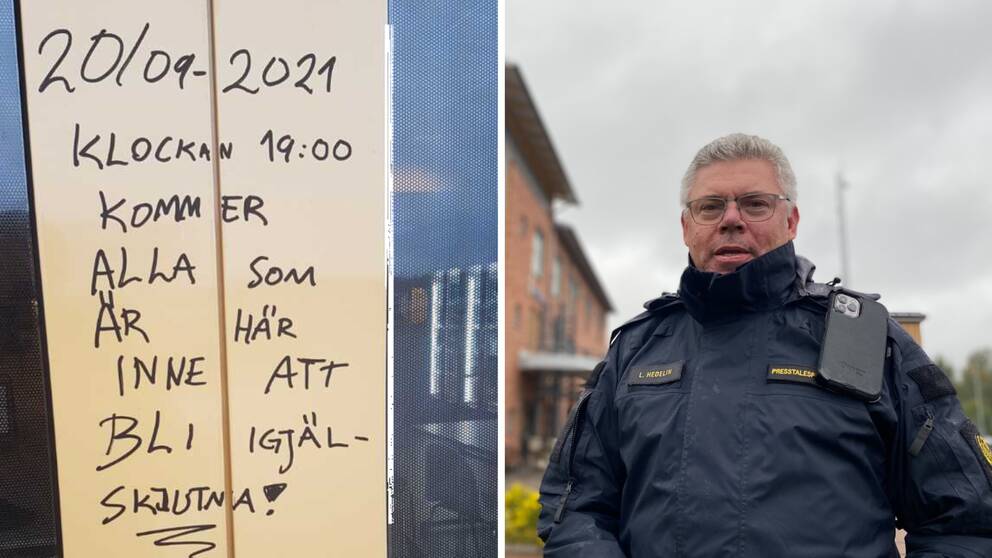 20/09-2021
KLOCKAN 19:00
KOMMER
ALLA SOM
ÄR HÄR
INNE ATT
BLI IGJÄL-
SKJUTNA!
L. HEDELIN
PRESSTALESP